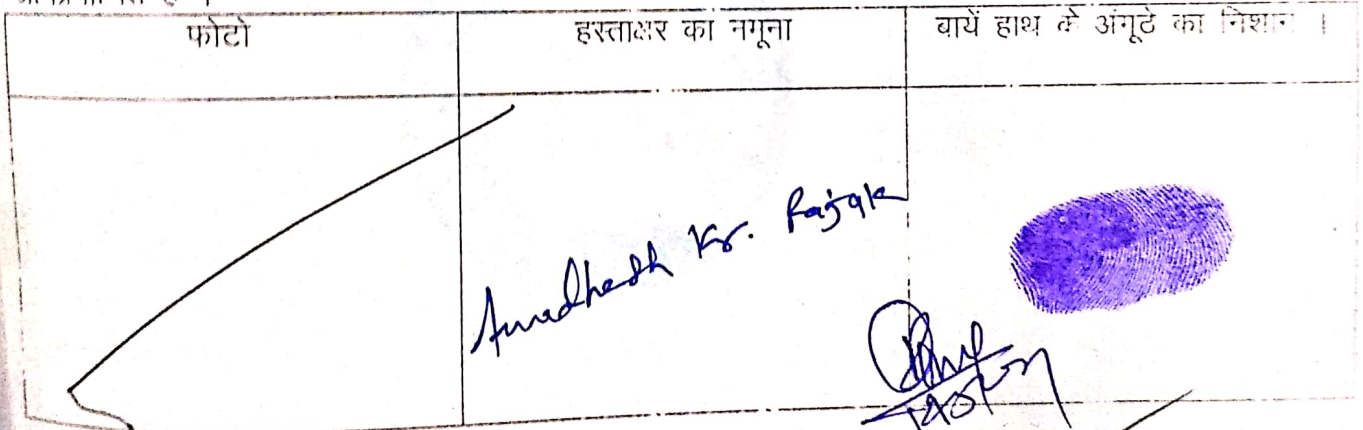 फोटो
हस्ताक्षर का नमूना
बायें हाथ के अंगूठे का निशान ।
Awadhesh Kr. Rajak